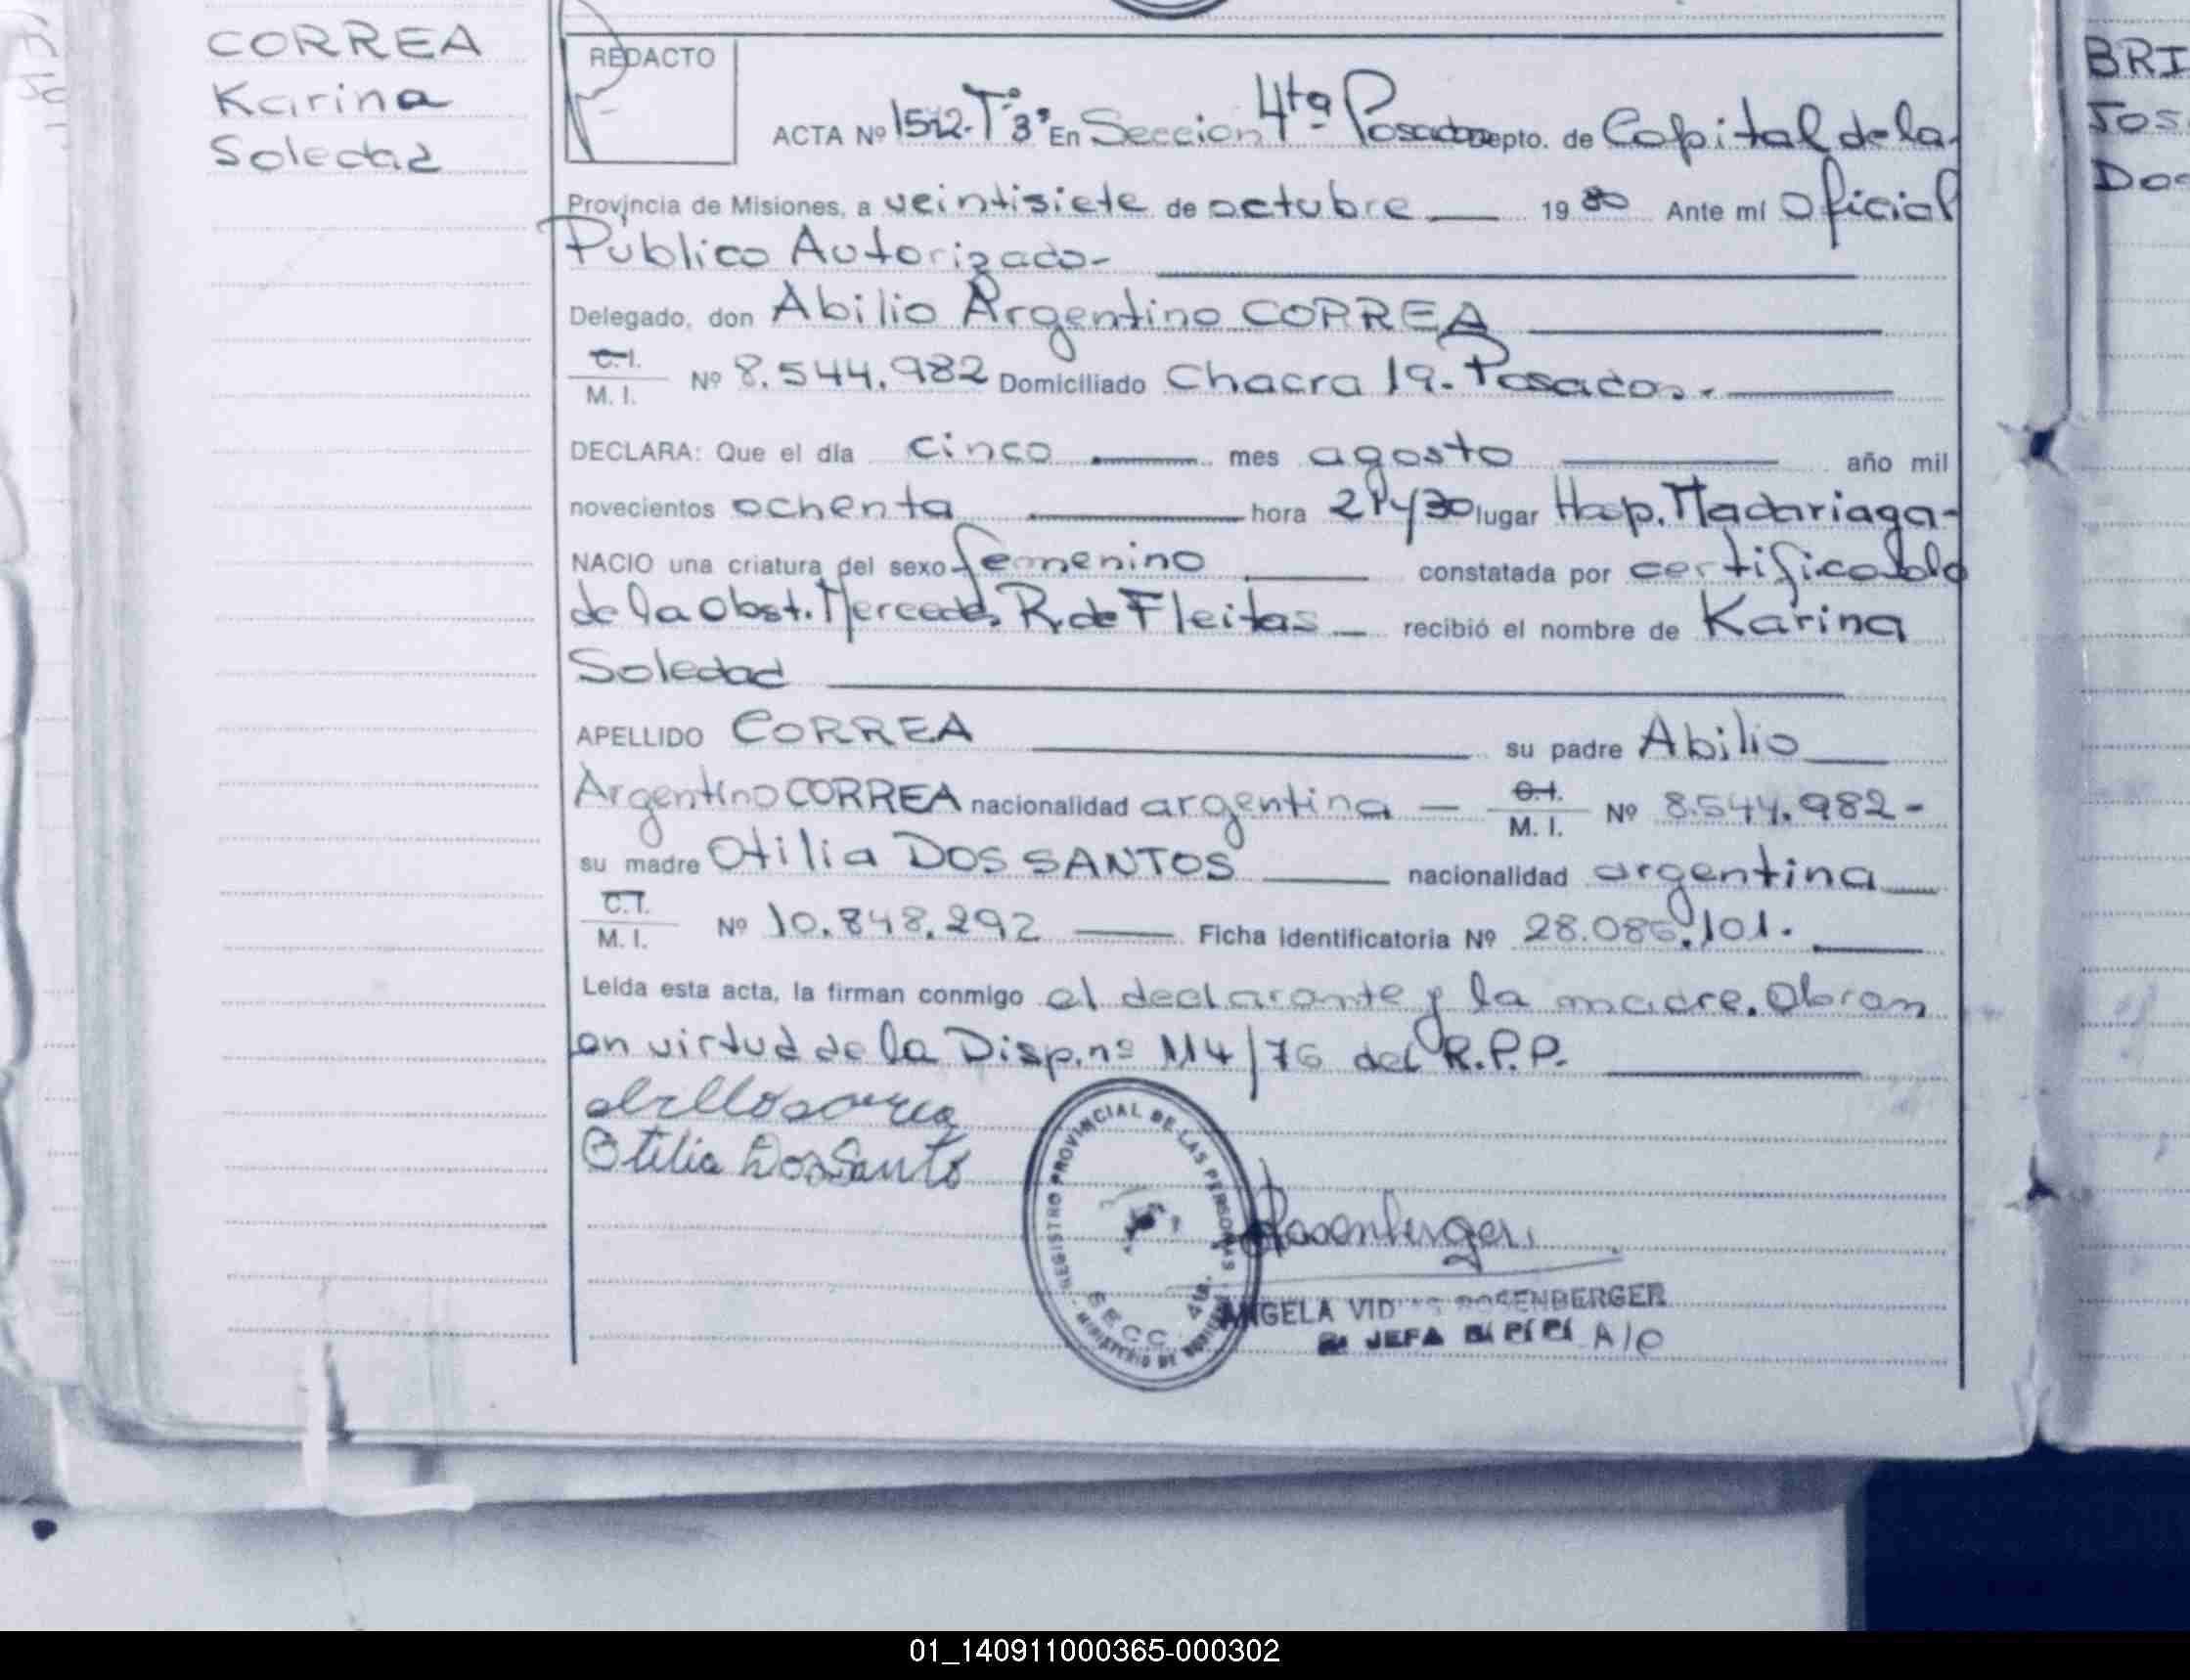 CORREA
Karina
Soledad
REDACTO
ACTA Nº 1512-Tº 3º En Seccion 4ta Posadas Depto. de Capital de la
Provincia de Misiones, a veintisiete de octubre 1980 Ante mí Oficial
Público Autorizado-
Delegado, don Abilio Argentino CORREA
C.I.
M. I. Nº 8.544.982 Domiciliado Chacra 19.- Posadas.-
DECLARA: Que el día cinco mes agosto año mil
novecientos ochenta hora 21 y 30 lugar Hosp. Madariaga-
NACIO una criatura del sexo femenino constatada por certificado
de la Obst. Mercedes R. de Fleitas recibió el nombre de Karina
Soledad
APELLIDO CORREA su padre Abilio
Argentino CORREA nacionalidad argentina C.I.
M. I. Nº 8.544.982-
su madre Otilia DOS SANTOS nacionalidad argentina
C.I.
M. I. Nº 10.848.292 Ficha Identificatoria Nº 28.086.101.
Leída esta acta, la firman conmigo el declarante y la madre. Obran
en virtud de la Disp. nº 114/76 del R.P.P.
Otilia Dos Santo
REGISTRO PROVINCIAL DE LAS PERSONAS
SECC. 4ta.
MINISTERIO DE GOBIERNO
Rosenberger
ANGELA ROSENBERGER
JEFA A/C
BRI
Jos
Dos
01_140911000365-000302